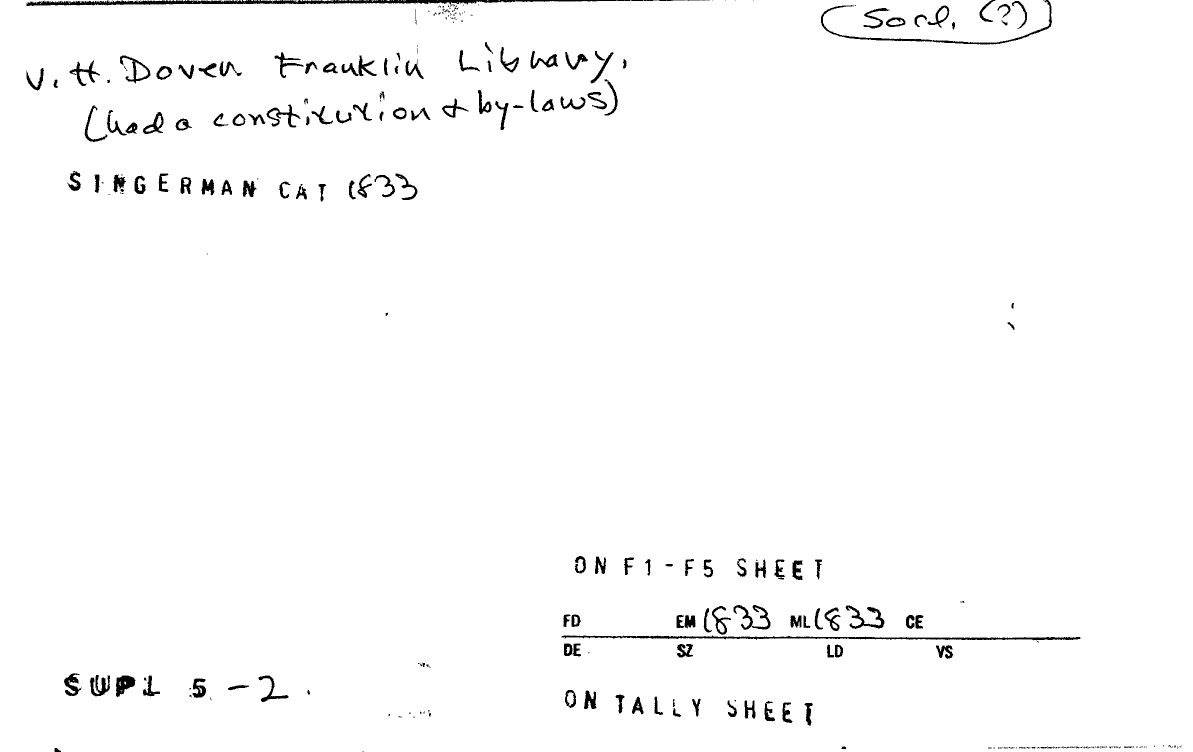 Socl. (?)
V. H. Dover Franklin Library.
(had a constitution & by-laws)
SINGERMAN CAT 1833
ON F1-F5 SHEET
FD EM 1833 ML 1833 CE
DE SZ LD VS
SUPL 5-2.
ON TALLY SHEET